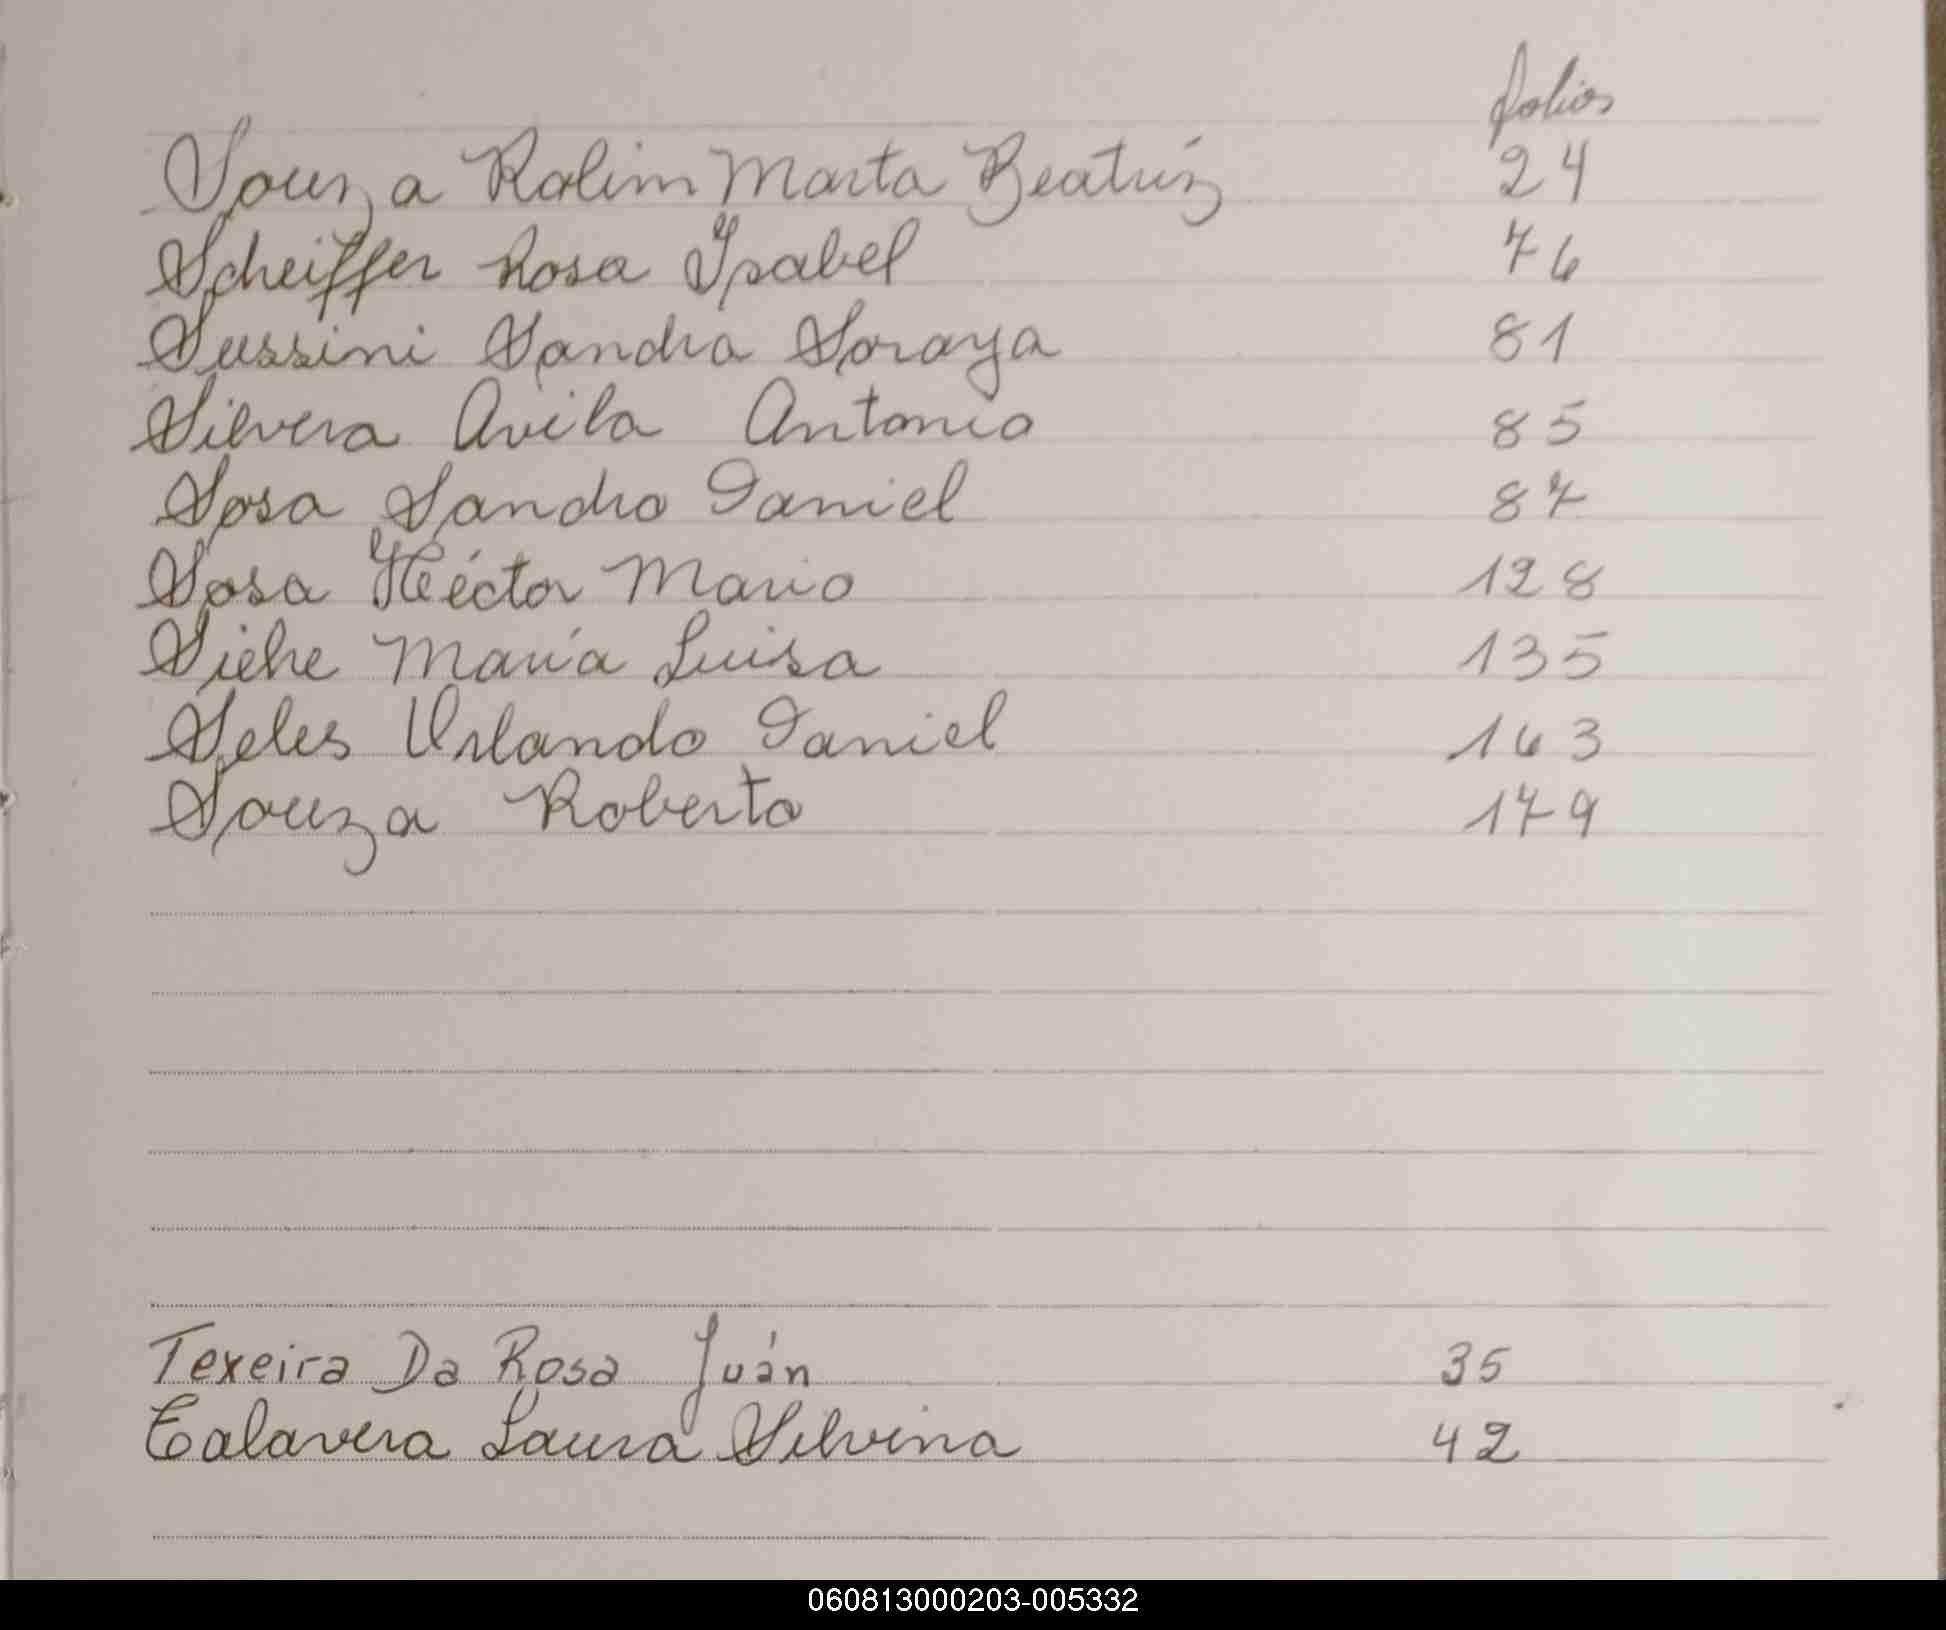 folios
Souza Rolim Marta Beatríz 24
Scheiffer Rosa Isabel 76
Sussini Sandra Soraya 81
Silvera Avila Antonio 85
Sosa Sandro Daniel 87
Sosa Héctor Mario 128
Siehe María Luisa 135
Seles Orlando Daniel 163
Souza Roberto 179
Texeira Da Rosa Juán 35
Talavera Laura Silvina 42
060813000203-005332